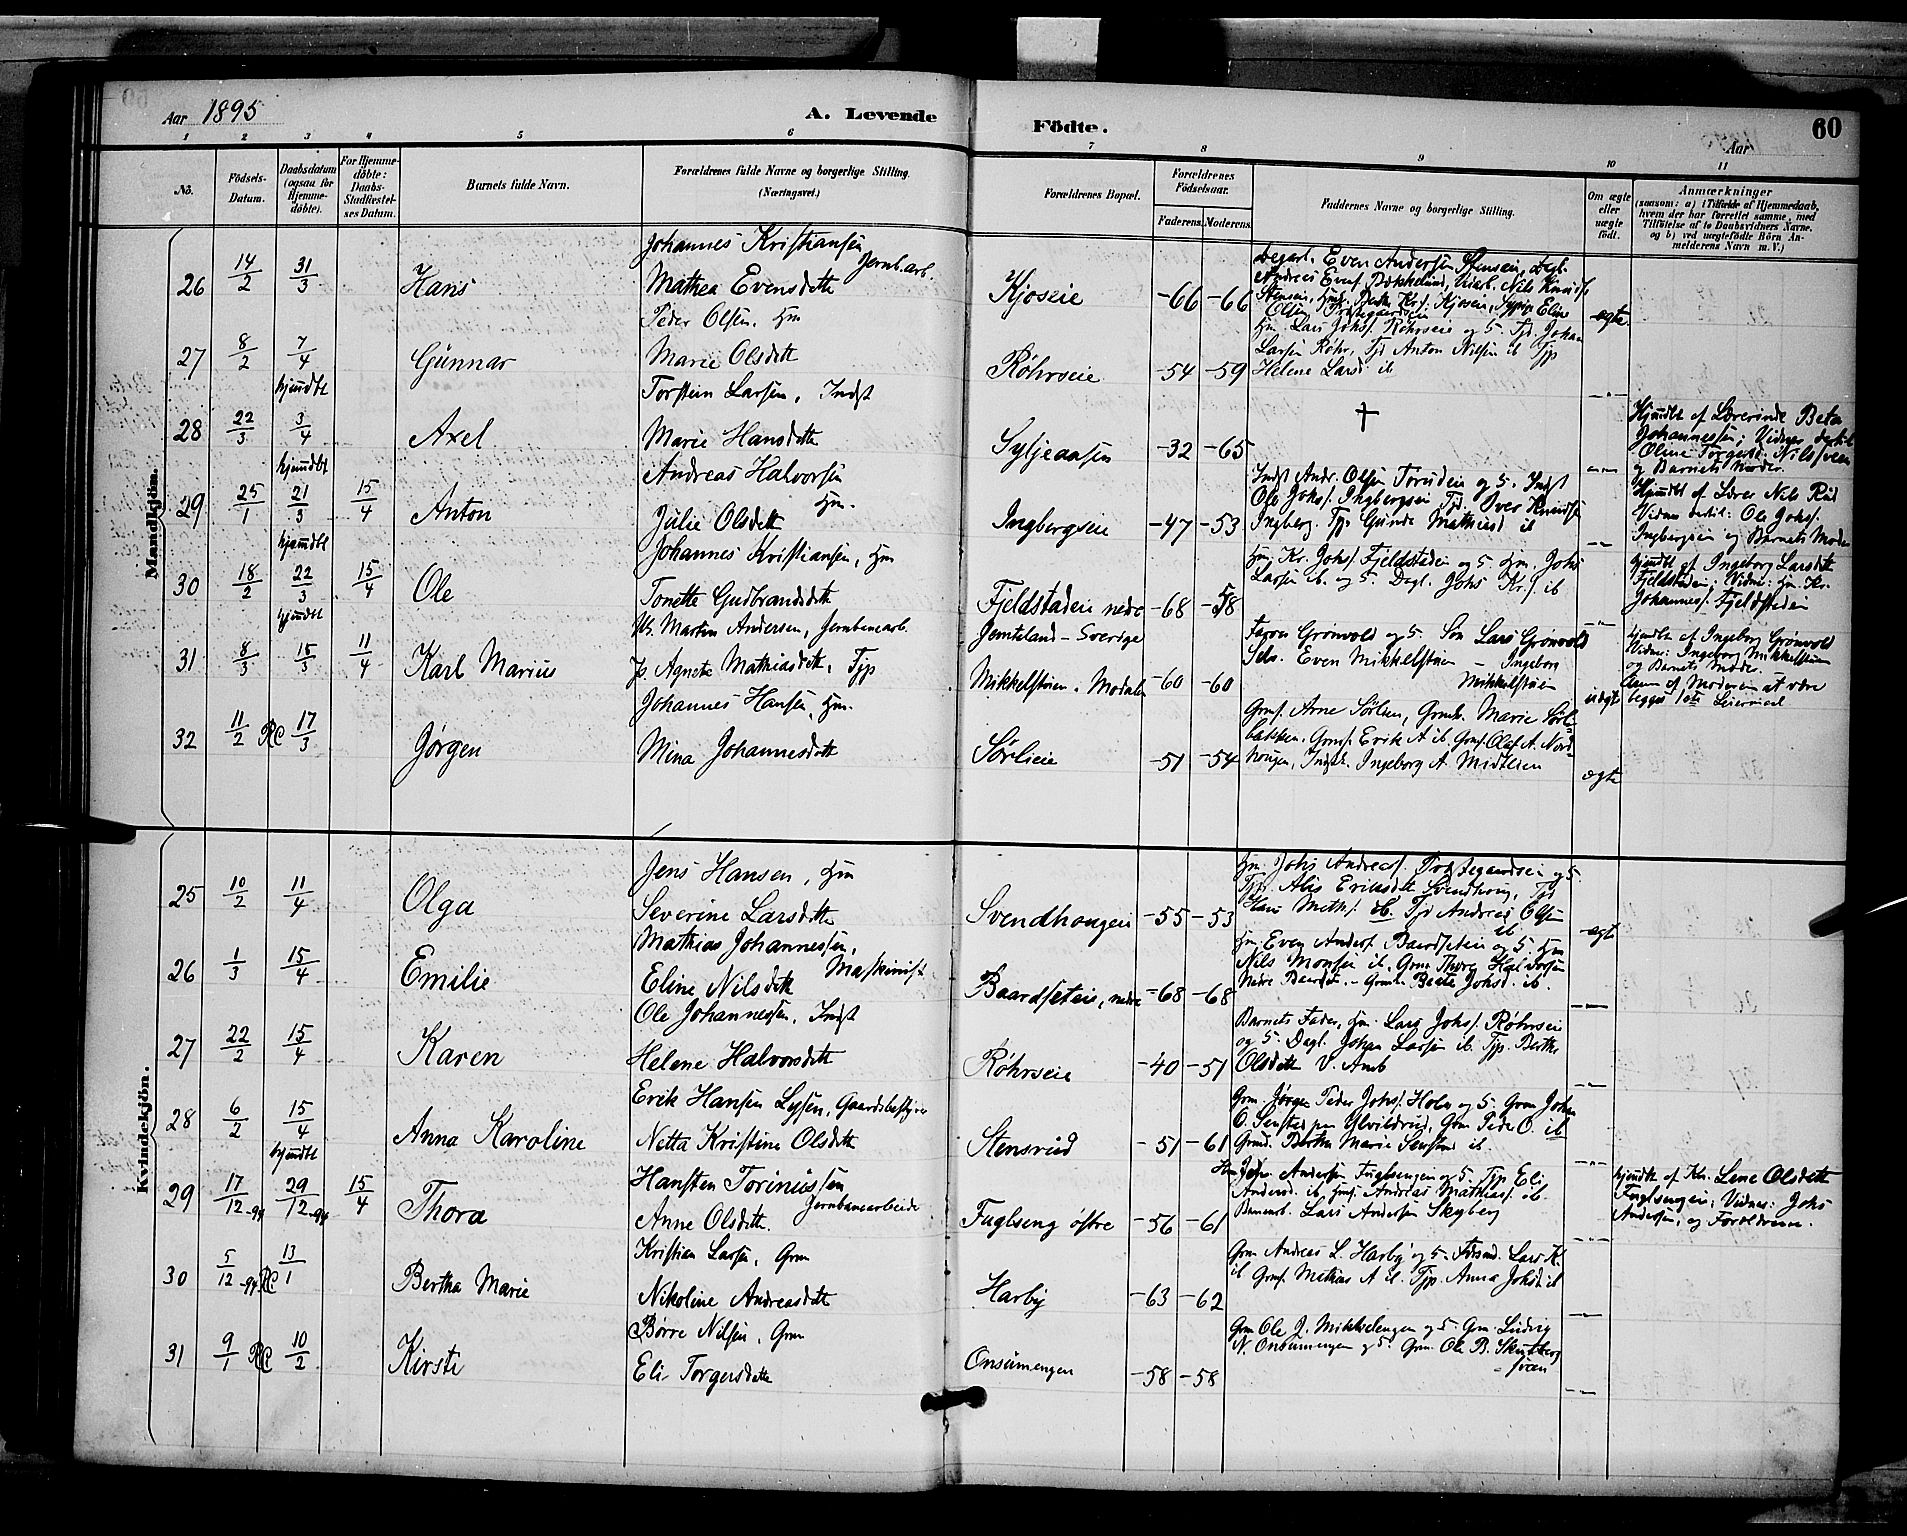 Aar 1895
A. Levende
Födte.
Aar
60
1 2 3 4 5 6 7 8 9 10 11
No.
Födsels-
Datum.
Daabsdatum
(ogsaa for
Hjemme-
döbte).
For Hjemme-
döbte:
Daabs-
Stadfæstel-
ses Datum.
Barnets fulde Navn.
Forældrenes fulde Navne og borgerlige Stilling.
(Næringsvei.)
Forældrenes Bopæl.
Forældrenes
Födselsaar.
Faderens. Moderens.
Faddernes Navne og borgerlige Stilling.
Om ægte
eller
uægte
født.
Anmærkninger
(saasom: a) i Tilfælde af Hjemmedaab,
hvem der har forrettet samme, med
Tilföielse af to Daabsvidners Navne,
og b) ved uægtefödte Börn An-
melderens Navn m. V.)
Mandkjön.
26 14/2 31/3 Hans
Johannes Kristiansen
Jernb.arb.
Mathea Evensdtt
Kjoseie -66 -66
ægte
27 8/2 7/4 Gunnar
Peder Olsen, Hm
Marie Olsdtt
Røhrseie -54 -59
Hm. Lars Johs. Røhrseie og 5. Tjd. Johan
Larsen Røhr, Tjd Anton Nilsen ib Tjp
Helene Larsd ib
28 22/3 hjemdbt 3/4 Axel
Torstein Larsen, Indst
Marie Hansdtt
Syljeaasen -32 -65
†
Hjemdbt af Lærerinde Beta
Johannessen; Vidner dertil
Oline Torgersd. Nilssveen
og Barnets Moder.
29 25/1 hjemdbt 21/3 15/4 Anton
Andreas Halvorsen
Hm.
Julie Olsdtt
Ingbergseie -47 -53
Indst Andr. Olsen Toruseie og 5. Indst
Ole Johs. Ingbergseie Tjd. Iver Knudsen
Ingberg. Tjp. Gunde Mathiasd ib
Hjemdbt af Lærer Nils Rud
Vidner dertil: Ole Johs.
Ingbergseie og Barnets Moder
30 18/2 hjemdbt 22/3 15/4 Ole
Johannes Kristiansen, Hm
Tonette Gudbrandsdtt
Fjeldstadeie nedre -68 -58
Hm. Kr. Johs. Fjeldstadeie og 5. Hm. Johs
Larsen ib. og 5. Dagl. Johs Kr. ib
hjemdbt af Ingeborg Larsdtt
Fjeldstadeie; Vidne: Hm. Kr.
Johannes. Fjeldstadeie
31 8/3 hjemdbt 15/3 11/4 Karl Marius
Uk. Martin Andersen, Jernbanearb.
P. Agnete Mathiasdtt, Tjp
Jemteland - Sverige
Mikkelstuen. Modalen -60 -60
Faren Grønvold og 5. Søn Lars Grønvold
Sels. Even Mikkelstuen - Ingeborg
Mikkelstuen
uægte
hjemdbt af Ingeborg Grønvold
Vidne: Ingeborg Mikkelstuen
og Barnets Moder.
Anm. af Moderen at være
begges 1ste Leiermaal
32 11/2 RC 17/3 Jørgen
Johannes Hansen, Hm.
Mina Johannesdtt
Sørlieie -51 -54
Grms. Arne Sørlien, Grmk. Marie Sørli-
bakken. Grms. Erik A ib Grms. Olaf A. Nord-
hougen, Indstk. Ingeborg A. Midtlien
ægte
Kvindekjön.
25 10/2 11/4 Olga
Jens Hansen, Hm
Severine Larsdtt
Svendhougen -55 -53
Hm. Johs Andreas. Præstegaardseie og 5.
Tjp. Alis Eriksdtt Svendhoug, Tjd
Hans Math. ib. Tjd Andreas Olsen
ib
ægte
26 1/3 15/4 Emilie
Mathias Johannessen,
Maskinist
Eline Nilsdtt
Baardseteie, nedre -68 -68
Hm. Even Anders. Baardseteie og 5 Hm
Nils Monsen ib, Grm Thorg Halvorsen
Nedre Baardset. - Grmk. Beate Johsd. ib.
27 22/2 15/4 Karen
Ole Johannessen, Indst
Helene Halvorsdtt
Røhrseie -40 -51
Barnets Fader, Hm. Lars Johs. Røhrseie
og 5. Dagl. Johan Larsen ib. Tjp. Berthe
Olsdtt V. Amb
28 6/2 15/4 Anna Karoline
Erik Hansen Lysen, Gaardsbestyrer
Netta Kristine Olsdtt
Stensrud -51 -61
Grm. Jørgen Peder Johs. Holm og 5. Grm Johan
O. Senstad pr Ulvildrud, Grm Peder O. ib
Grmd. Bertha Marie Senstad ib.
29 17/12-94 hjemdbt 29/12-94 15/4 Thora
Hansten Torinussen
Jernbanearbeider
Anne Olsdtt.
Fuglseng østre -56 -61
Hm Johs. Andersen Fuglsengen og 5. Tjp Eli
Andersd. ib. Hms. Andreas Mathias. ib.
Banearb. Lars Andersen Skyberg
hjemdbt af Kn. Lene Olsdtt
Fuglsengen; Vidnes: Johs
Andersen, og Forældrene.
30 5/12-94 RC 13/1 Bertha Marie
Kristian Larsen, Grm
Nikoline Andreasdtt
Harby -63 -62
Grm Andreas L. Harby og 5. Fdrsmd. Lars K.
ib Grms. Mathias A ib. Tjp. Anna Johsd ib
31 9/1 RC 10/2 Kirsti
Børre Nilsen, Grm
Eli Torgersdtt
Onsumengen -58 -58
Grm Ole J. Mikkelengen og 5. Grm. Ludvig
N. Onsumengen og 5. Grm. Ole B. Skytberg
sveen